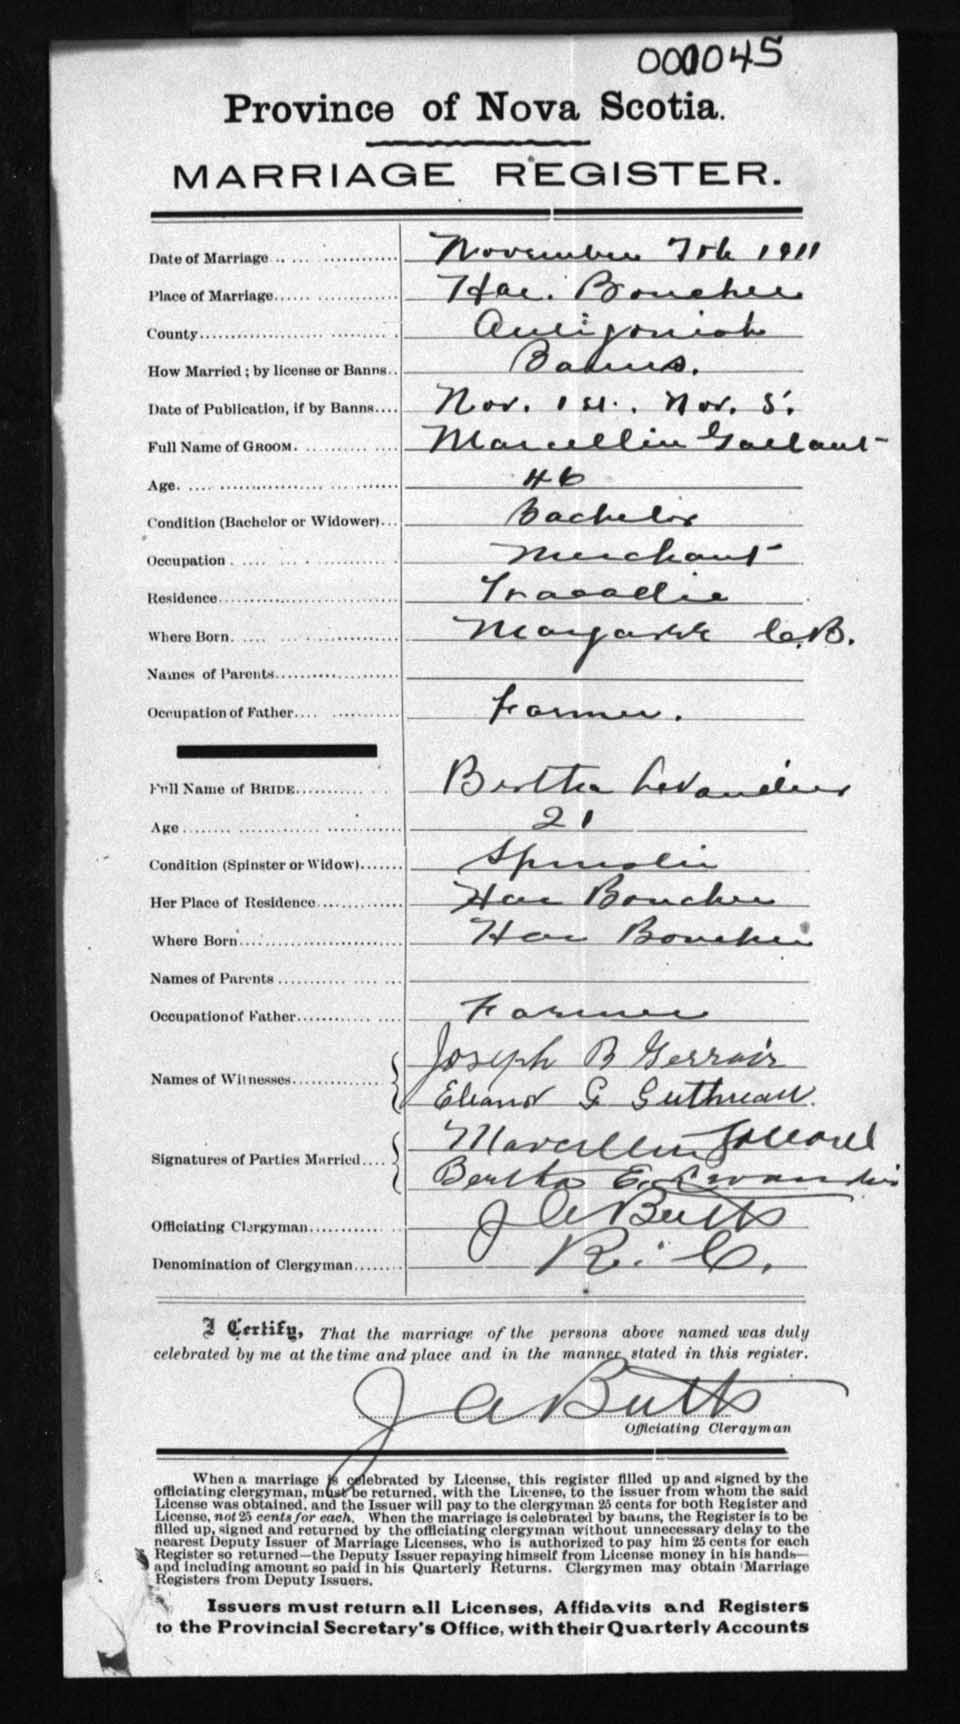 000045
Province of Nova Scotia.
MARRIAGE REGISTER.
Date of Marriage November 7th 1911
Place of Marriage Har. Bouchee
County Antigonish
How Married; by license or Banns Banns.
Date of Publication, if by Banns Nov. 1st. Nov. 5.
Full Name of GROOM Marcellin Gallant
Age 46
Condition (Bachelor or Widower) Bachelor
Occupation Merchant
Residence Tracadie
Where Born Margaree C.B.
Names of Parents
Occupation of Father Farmer.
Full Name of BRIDE Bertha LeVandier
Age 21
Condition (Spinster or Widow) Spinster
Her Place of Residence Har Bouchee
Where Born Har Bouchee
Names of Parents
Occupation of Father Farmer
Names of Witnesses Joseph B Gerroir
Eleanor G
Signatures of Parties Married Marcellin Gallant
Bertha E. Levandier
Officiating Clergyman J A Butts
Denomination of Clergyman R. C.
I Certify, That the marriage of the persons above named was duly
celebrated by me at the time and place and in the manner stated in this register.
J A Butts
Officiating Clergyman
When a marriage is celebrated by License, this register filled up and signed by the
officiating clergyman, must be returned, with the License, to the issuer from whom the said
License was obtained, and the Issuer will pay to the clergyman 25 cents for both Register and
License, not 25 cents for each. When the marriage is celebrated by banns, the Register is to be
filled up, signed and returned by the officiating clergyman without unnecessary delay to the
nearest Deputy Issuer of Marriage Licenses, who is authorized to pay him 25 cents for each
Register so returned—the Deputy Issuer repaying himself from License money in his hands—
and including amount so paid in his Quarterly Returns. Clergymen may obtain Marriage
Registers from Deputy Issuers.
Issuers must return all Licenses, Affidavits and Registers
to the Provincial Secretary's Office, with their Quarterly Accounts